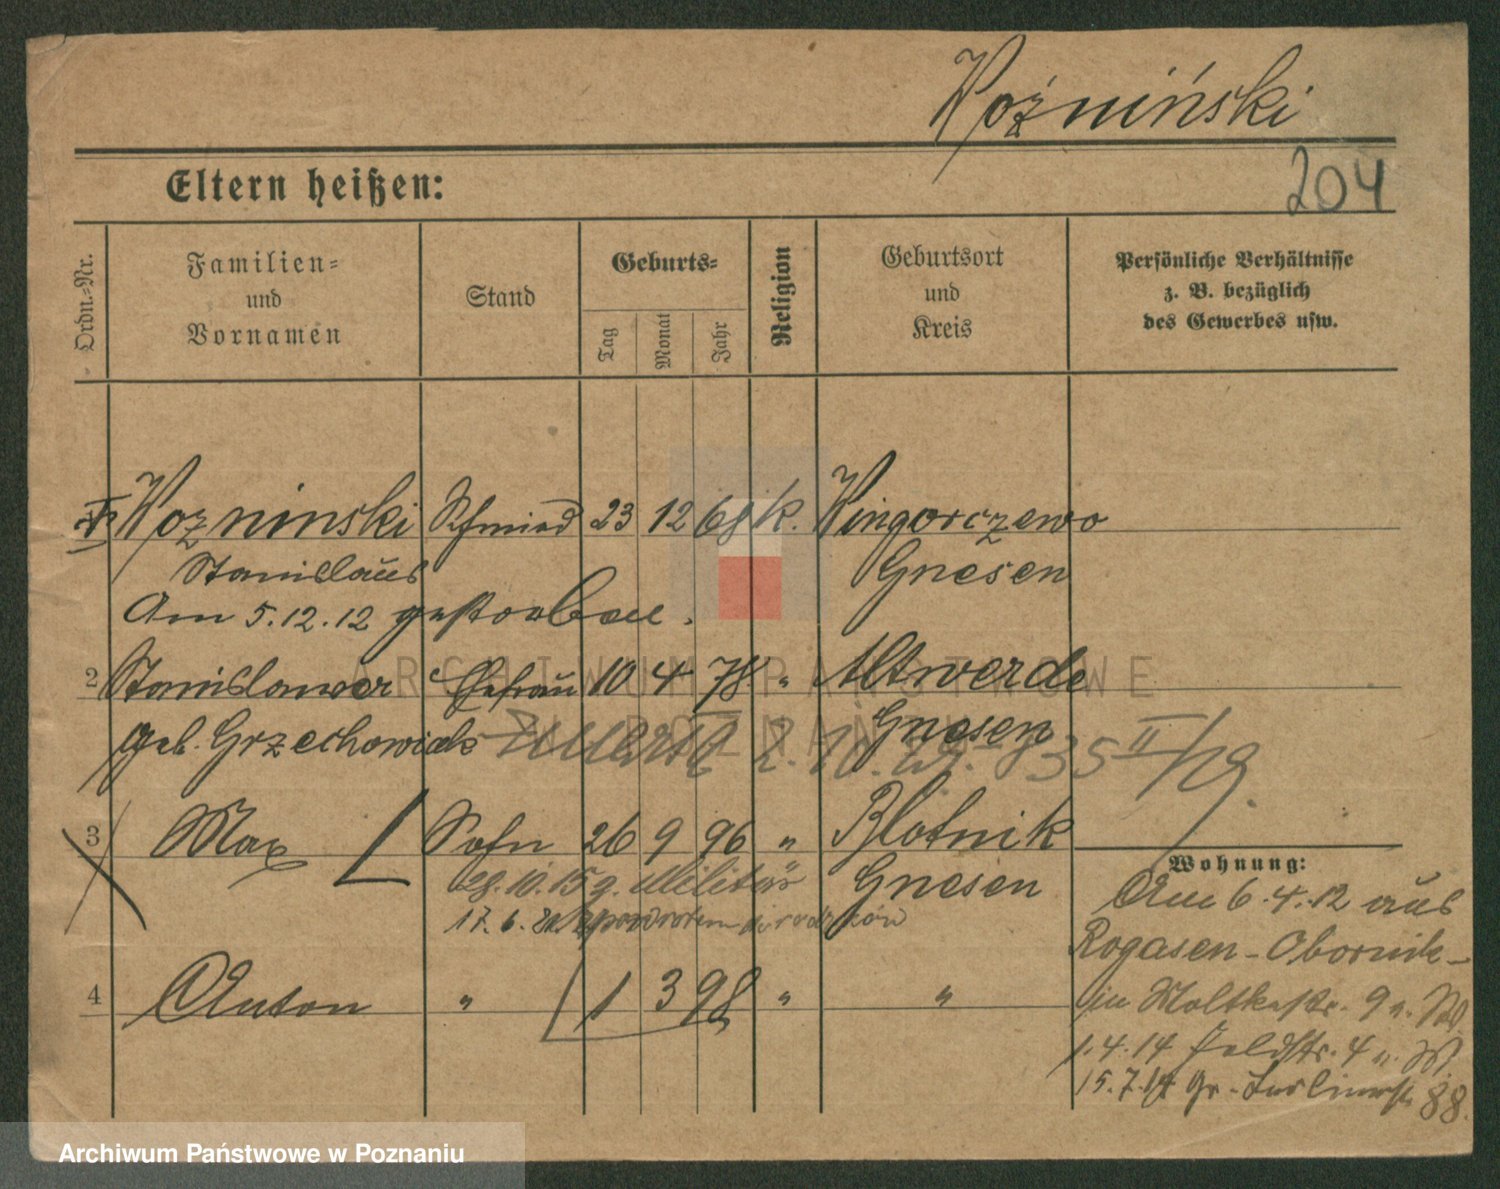 Woźniński
Eltern heißen:
204
Ordn.-Nr.
Familien-
und
Vornamen
Stand
Geburts-
Tag
Monat
Jahr
Religion
Geburtsort
und
Kreis
Persönliche Verhältnisse
z. B. bezüglich
des Gewerbes usw.
Wozninski Schmied 23 12 68 k. Wingorczewo
Stanislaus Gnesen
Am 5.12.12 gestorben.
2 Stanislawa Ehefrau 10 4 78 " Altwerde
geb. Grzechowiak Gnesen
2.10. 835 II/19.
3 Max Sohn 26 9 96 " Blotnik
28.10.15 z. Militär Gnesen
17.6. z powrotem do rodziców
4 Anton " 1 3 98 " "
Wohnung:
Am 6.4.12 aus
Rogasen-Obornik-
in Moltkestr. 9 n. W.
1.4.14 Feldstr. 4 n. W.
15.7.14 Gr. Berlinerstr. 88.
ARCHIWUM PAŃSTWOWE
W POZNANIU
Archiwum Państwowe w Poznaniu